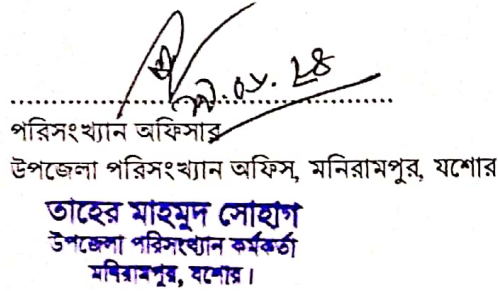 পরিসংখ্যান অফিসার
উপজেলা পরিসংখ্যান অফিস, মনিরামপুর, যশোর
তাহের মাহমুদ সোহাগ
উপজেলা পরিসংখ্যান কর্মকর্তা
মনিরামপুর, যশোর।